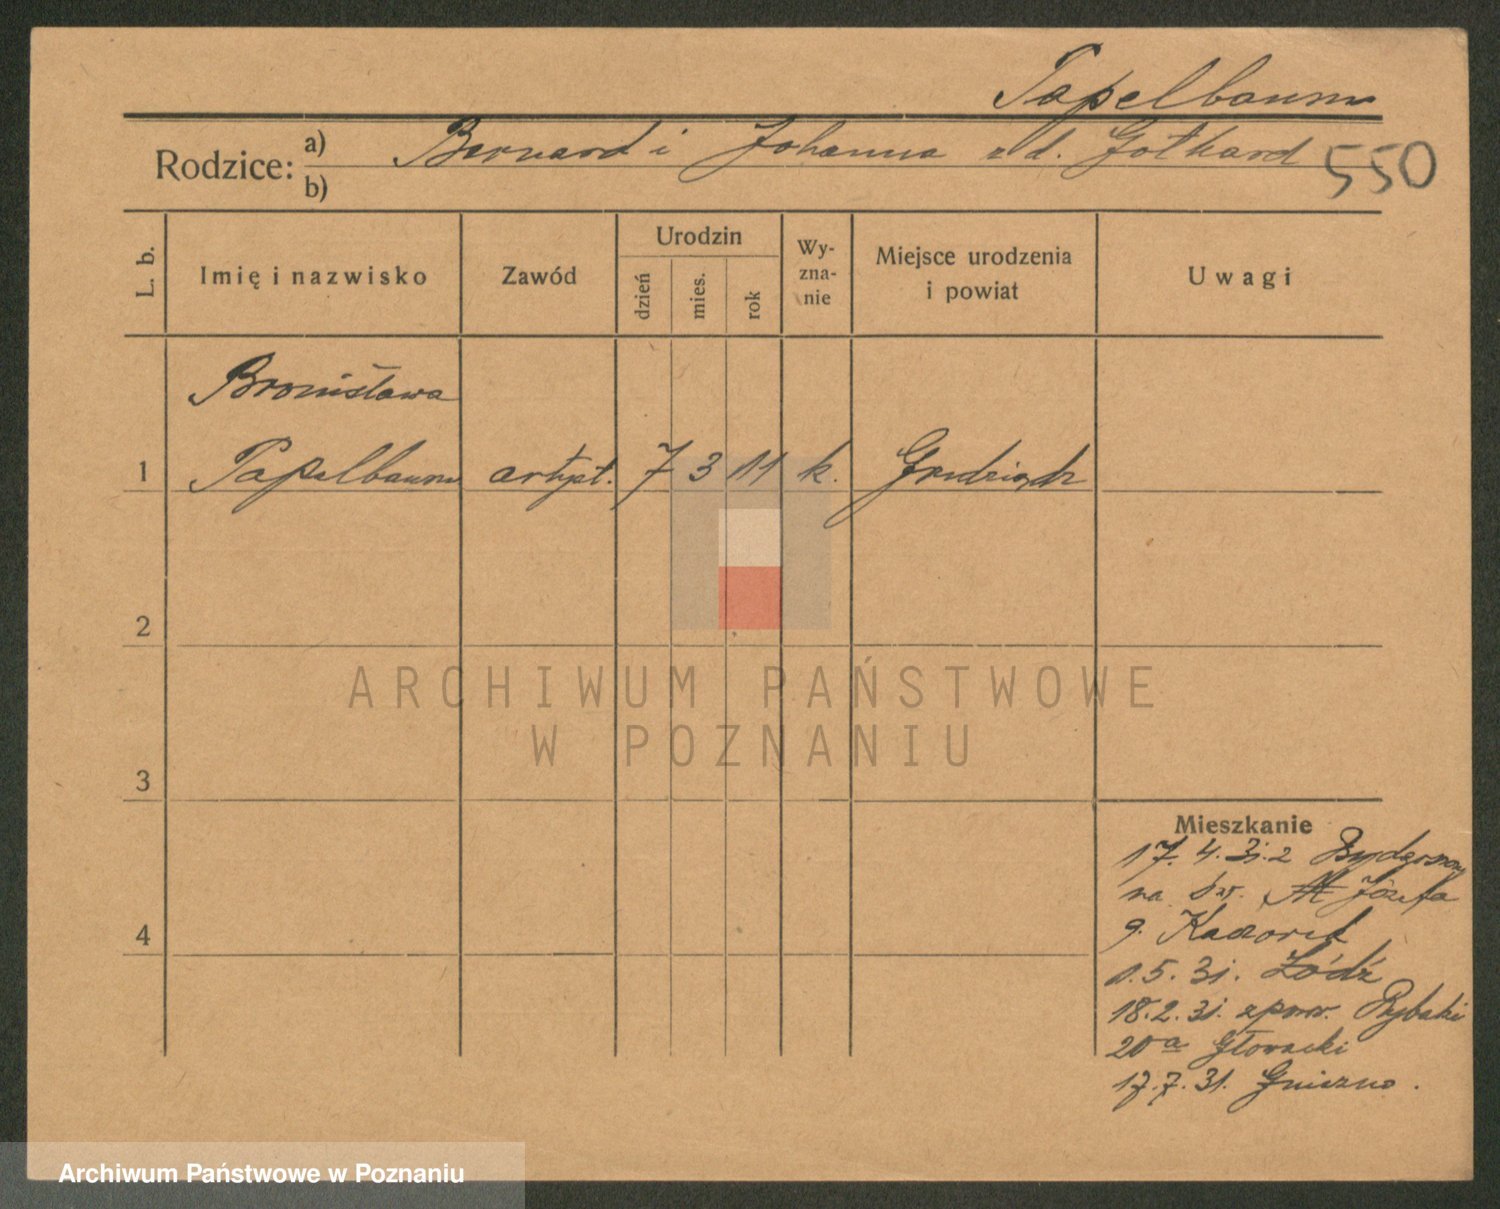 Tapelbaum
Rodzice: a) Bernard i Johanna z d. Gothard
b)
550
L. b.
Imię i nazwisko
Zawód
Urodzin
dzień
mies.
rok
Wy-
zna-
nie
Miejsce urodzenia
i powiat
Uwagi
Bronisława
1 Tapelbaum artyst. 7 3 11 k. Grudziądz
2
ARCHIWUM PAŃSTWOWE
W POZNANIU
3
Mieszkanie
17. 4. 31. z Bydgoszczy
na Józefa
4
9. Kaczorek
1. 5. 31. Łódź
18. 2. 31. zpow. Rybaki
20a Głowacki
17. 7. 31. Gniezno.
Archiwum Państwowe w Poznaniu